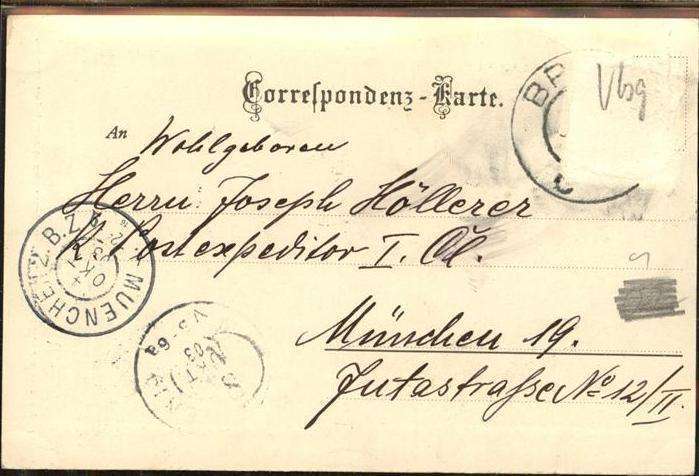 Correspondenz-Karte.
An Wohlgeboren
Herrn Joseph Höllerer
K. Postexpeditor I. Cl.
München 19.
Jutastraße No 12/II.
BR
Vbg
MUENCHEN
B.Z.
OKT
03